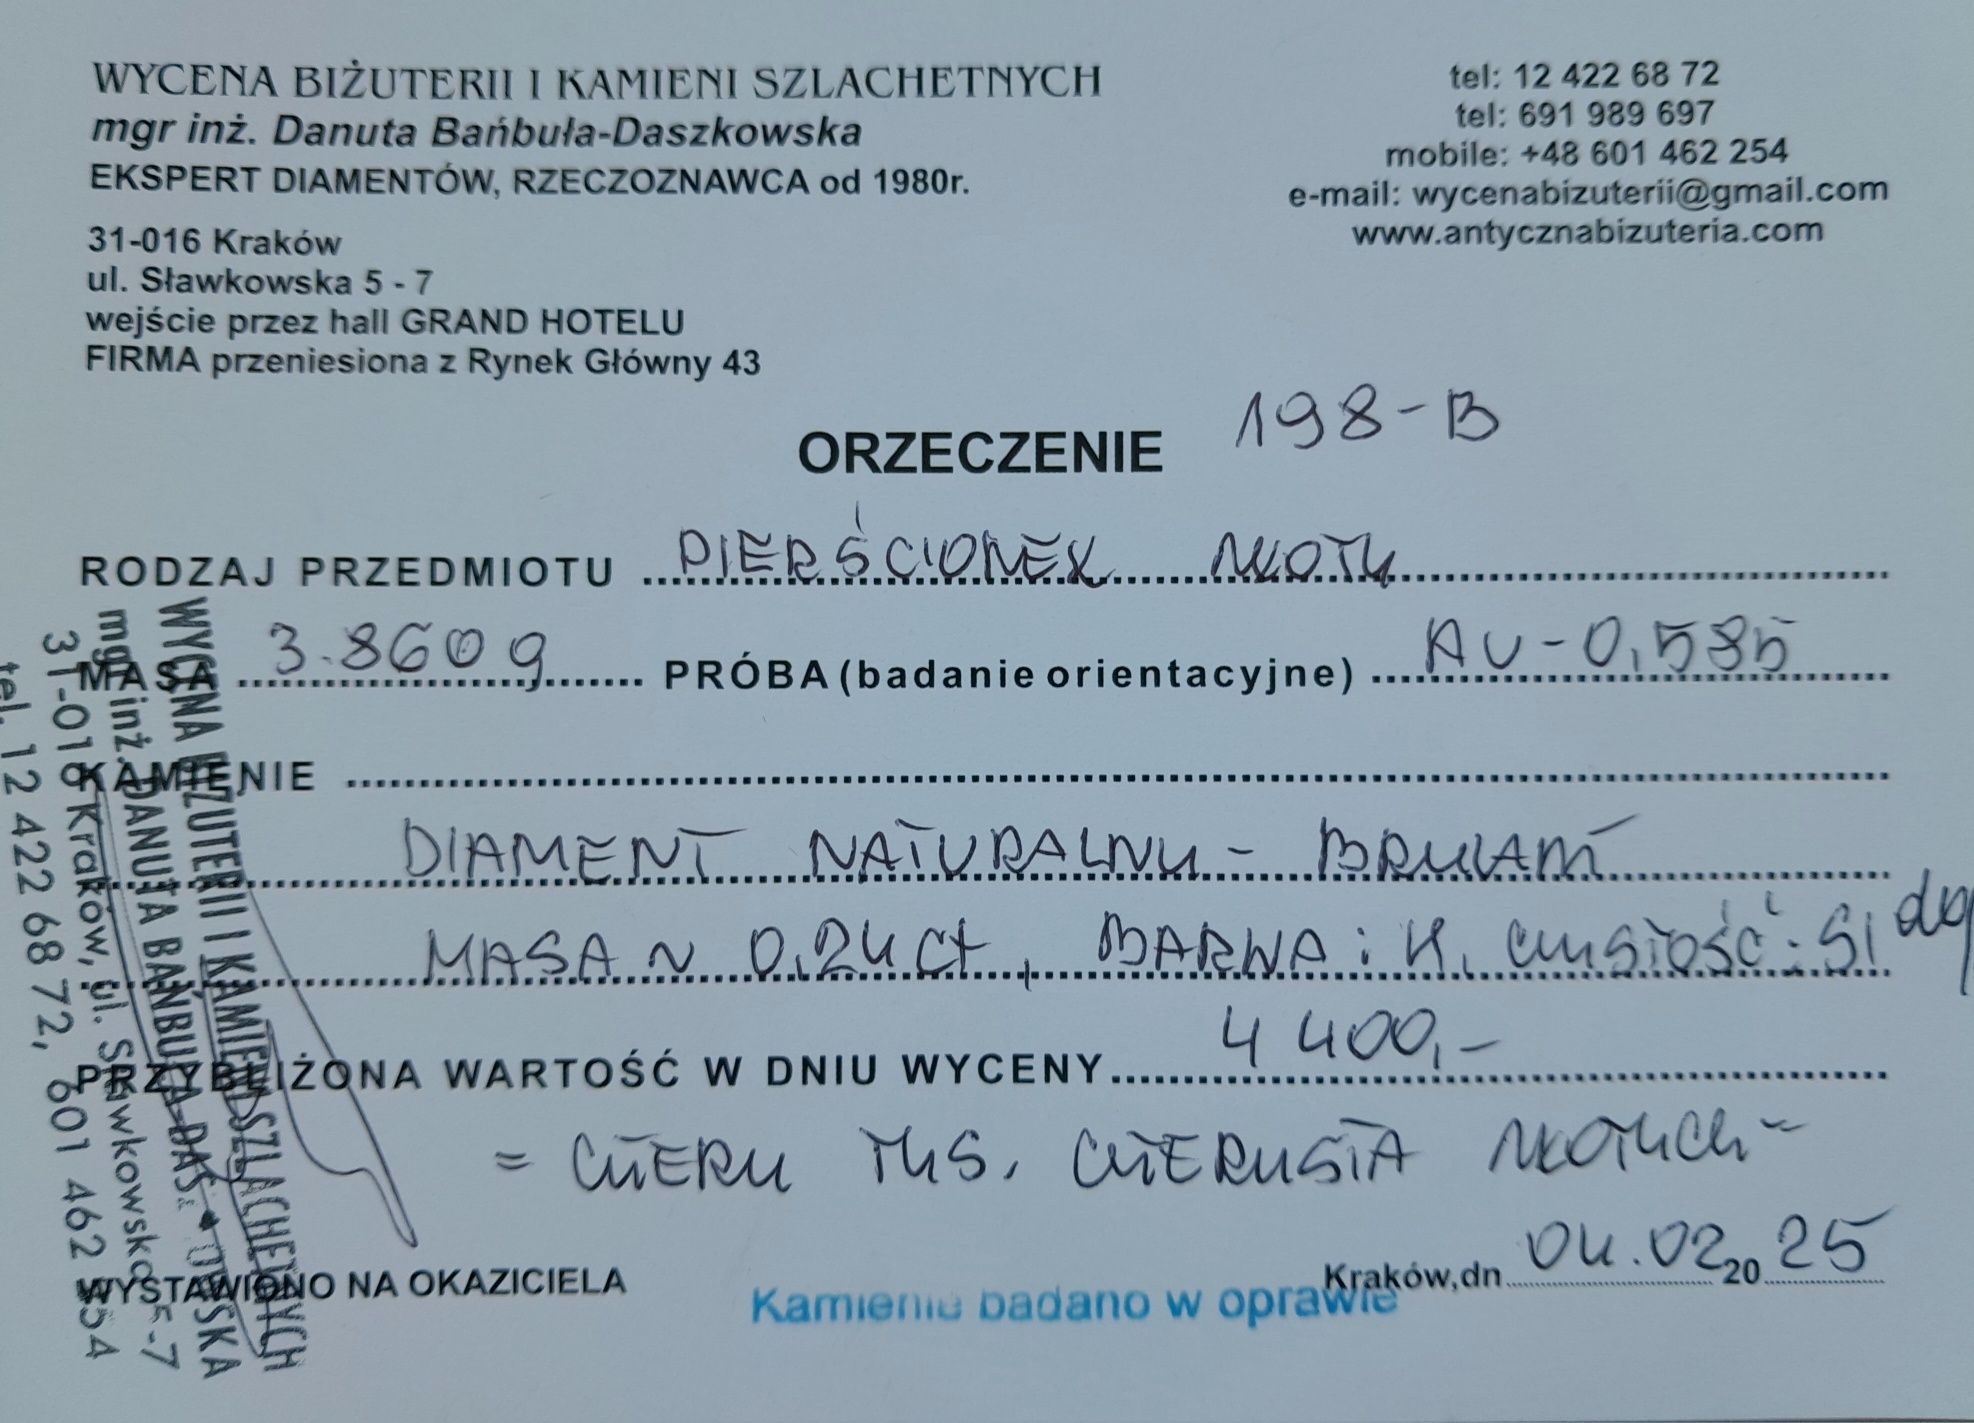 WYCENA BIŻUTERII I KAMIENI SZLACHETNYCH
mgr inż. Danuta Bańbuła-Daszkowska
EKSPERT DIAMENTÓW, RZECZOZNAWCA od 1980r.
31-016 Kraków
ul. Sławkowska 5 - 7
wejście przez hall GRAND HOTELU
FIRMA przeniesiona z Rynek Główny 43
tel: 12 422 68 72
tel: 691 989 697
mobile: +48 601 462 254
e-mail: wycenabizuterii@gmail.com
www.antycznabizuteria.com
ORZECZENIE 198-B
RODZAJ PRZEDMIOTU PIERŚCIONEK ZŁOTY
MASA 3.860 g PRÓBA (badanie orientacyjne) AU-0,585
KAMIENIE
DIAMENT NATURALNY - BRYLANT
MASA ~ 0,24 ct, BARWA: K, CZYSTOŚĆ: SI
PRZYBLIŻONA WARTOŚĆ W DNIU WYCENY 4 400,-
= CZTERY TYS. CZTERYSTA ZŁOTYCH =
WYSTAWIONO NA OKAZICIELA
Kraków, dn 04.02.2025
Kamienie badano w oprawie
WYCENA BIŻUTERII I KAMIENI SZLACHETNYCH
mgr inż. DANUTA BAŃBUŁA-DASZKOWSKA
31-016 Kraków, ul. Sławkowska 5-7
tel. 12 422 68 72, 601 462 254